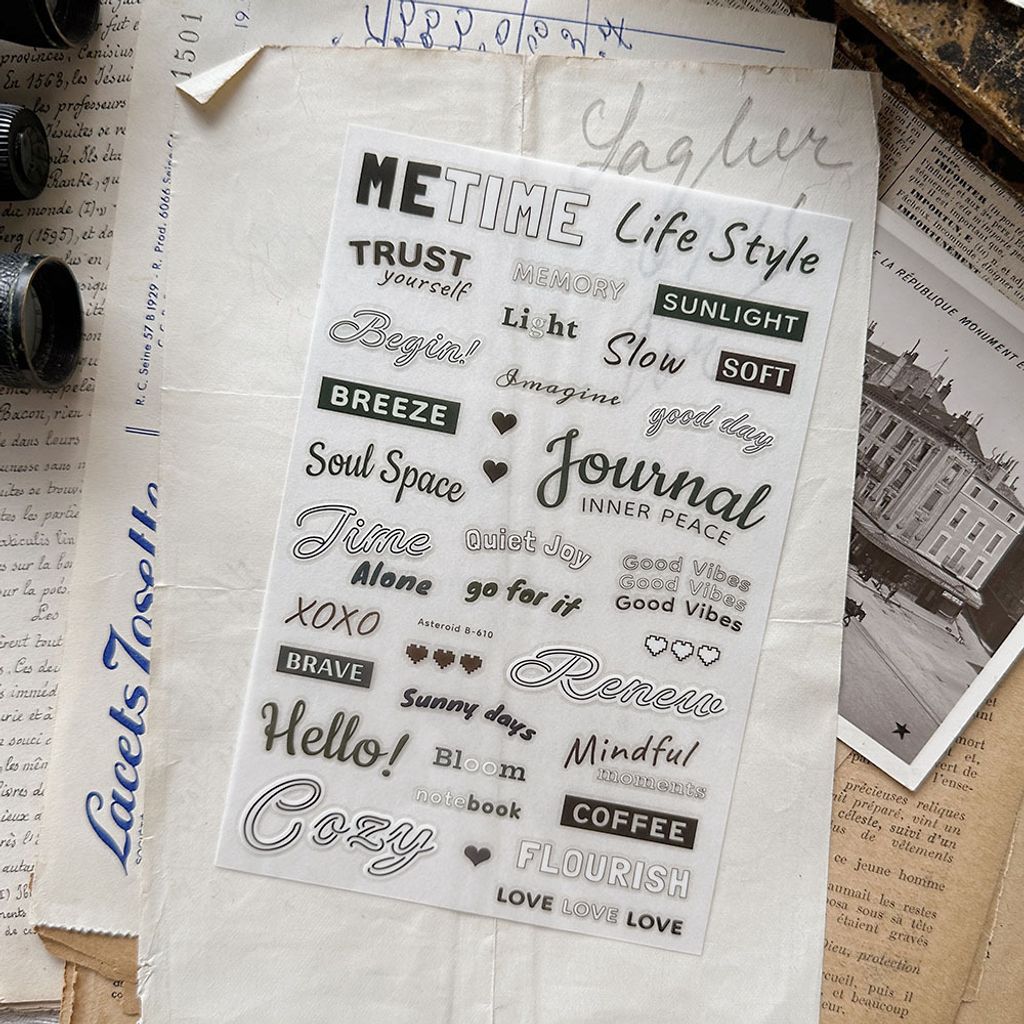 METIME
Life Style
TRUST
yourself
MEMORY
SUNLIGHT
Begin!
Light
Slow
SOFT
Imagine
BREEZE
good day
Soul Space
Journal
INNER PEACE
Time
Quiet Joy
Good Vibes
Good Vibes
Good Vibes
Alone
go for it
XOXO
Asteroid B-610
BRAVE
Renew
Sunny days
Hello!
Bloom
Mindful
moments
notebook
COFFEE
Cozy
FLOURISH
LOVE LOVE LOVE
1501
R. C. Seine 57 B 1929 - R. Prod. 6066 Seine
Lacets Tosetto
provinces, Canisius
En 1563, les Jésui
les professeurs
Jésuites se
du monde (I)
erg (1595), et do
Bacon, rien
LA RÉPUBLIQUE MONUMENT
IMPORTER
précieuses reliques
préparé, vint un
céleste, suivi d'un
de vêtements
ce jeune homme
aumait les restes
sous sa tête
étaient gravés
Dieu, protection
puis il
et beaucoup